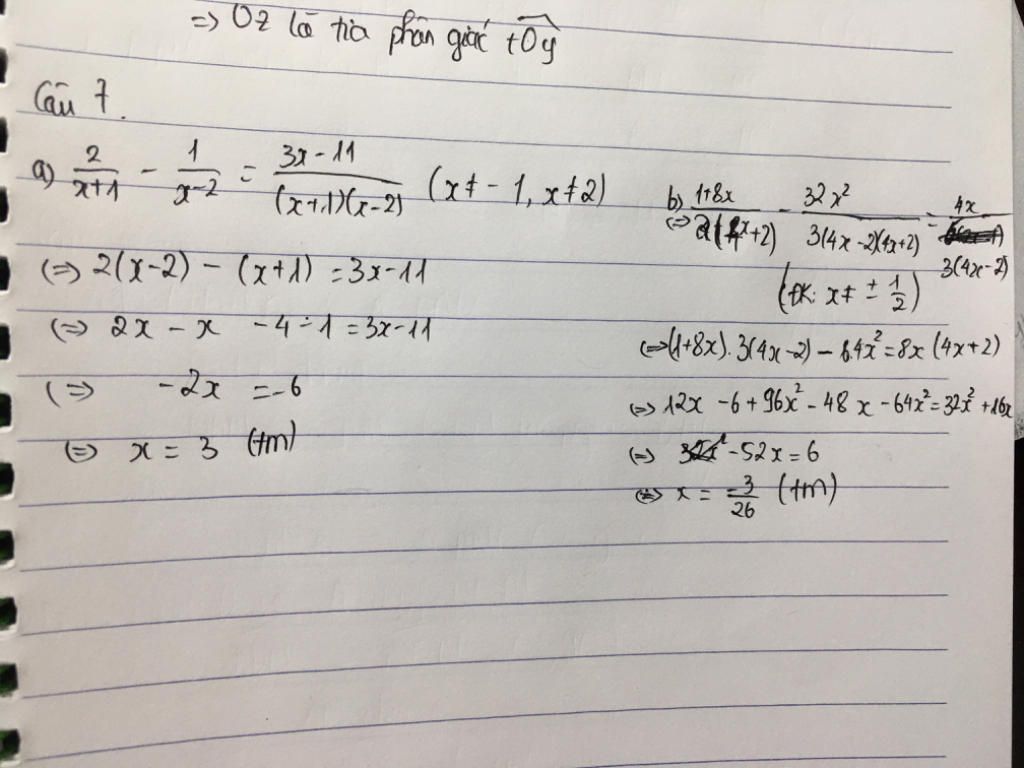 => Oz là tia phân giác tOy
Câu 7.
a) 2/(x+1) - 1/(x-2) = (3x-11)/((x+1)(x-2)) (x≠-1, x≠2)
(=) 2(x-2) - (x+1) = 3x-11
(=) 2x - x -4-1=3x-11
(=) -2x = -6
(=) x = 3 (tm)
b) (1+8x)/( (4x+2)) - 32x²/(3(4x-2)(4x+2)) = 4x/(3(4x-2))
(ĐK: x≠ ± 1/2)
(=>(1+8x).3(4x-2) - 64x²=8x(4x+2)
(=) 12x -6+96x²-48x-64x²=32x²+16x
(=) -52x=6
(=) x = -3/26 (tm)